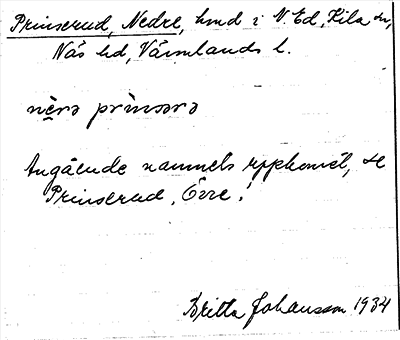 Prinserud, Nedre, hmd i N. Ed, Kila sn,
Näs hd, Värmlands l.
nèrə prìnsərə
Angående namnets uppkomst, se
Prinserud, Övre!
Britta Johansson 1934